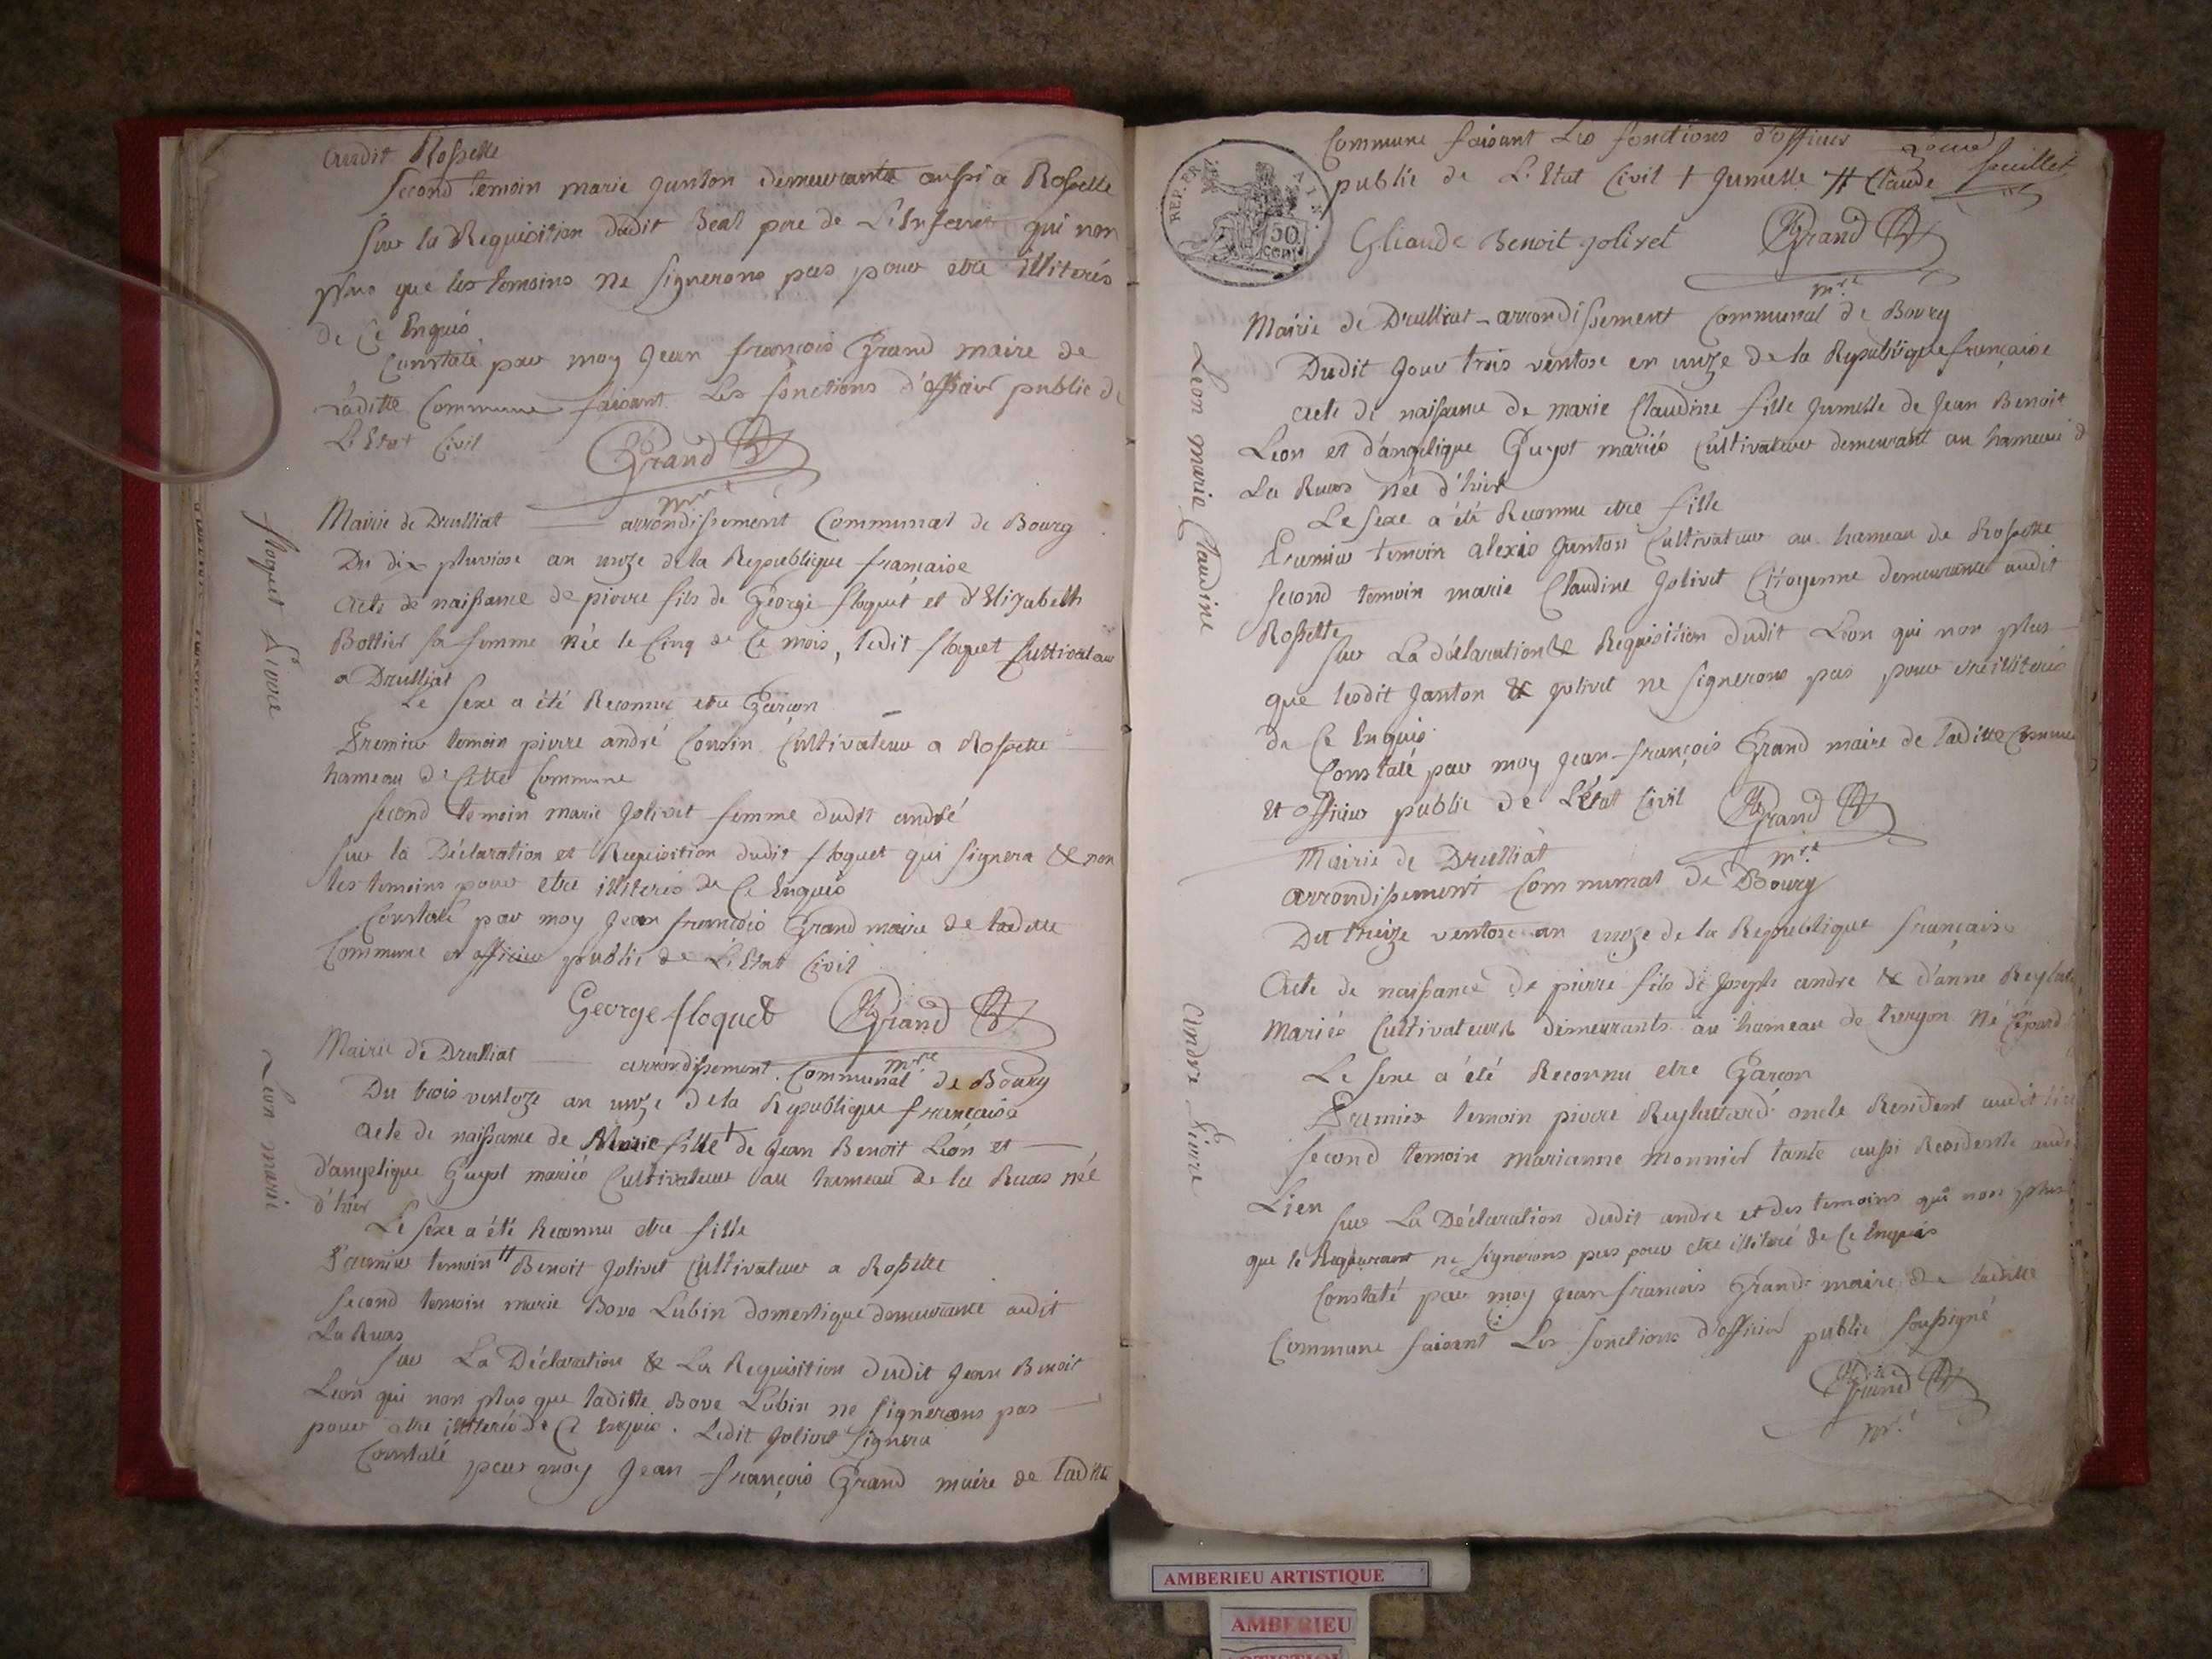 audit Rossette
second temoin marie Janton demeurante aussi a Rossette
sur la Requisition dudit Beal pere de L'Enfant qui non
plus que les temoins ne signerons pas pour etre illiterés
de Ce Enquis
Constaté par moy Jean françois Grand maire de
Laditte Commune faisant les fonctions d'officier public de
L'Etat Civil
Grand
mre
floquet Pierre
Mairie de Drulliat arrondissement Communal de Bourg
Du dix pluviose an unze de la Republique francaise
Acte de naissance de pierre fils de George floquet et d'Elizabeth
Bottier sa femme née le Cinq de Ce mois, ledit floquet Cultivateur
a Drulliat
Le sexe a été Reconnu etre Garcon
Premier temoin pierre andré Cousin Cultivateur a Rossette
hameau de Cette Commune
second temoin marie Jolivet femme dudit andré
sur la Déclaration et Requisition dudit floquet qui signera & non
les temoins pour etre illiterés de Ce Enquis
Constaté par moy Jean francois Grand maire de laditte
Commune et officier public de L'Etat Civil
George floquet Grand
mre
Leon marie
Mairie de Drulliat arrondissement Communal de Bourg
Du trois ventoze an unze de la Republique francaise
acte de naissance de Marie fille + de Jean Benoit Léon et
d'angelique Guyot mariés Cultivateur au hameau de la Ruas née
d'hier
Le sexe a été Reconnu etre fille
Premier temoin # Benoit Jolivet Cultivateur a Rossette
second temoin marie Bove Lubin domestique demeurante audit
La Ruas
sur La Déclaration & La Requisition dudit Jean Benoit
Leon qui non plus que laditte Bove Lubin ne signerons pas
pour etre illiterés de Ce Enquis. Ledit Jolivet signera
Constaté par moy Jean françois Grand maire de laditte
Commune faisant Les fonctions d'officier
feuillet
public de L'Etat Civil + Jumelle # Claude
REP. FRA
AIN.
50
cent
Gliaude Benoit Jolivet Grand
mre
Leon marie Claudine
Mairie de Drulliat - arrondissement Communal de Bourg
Dudit Jour trois ventose en unze de la Republique francaise
acte de naissance de marie Claudine fille Jumelle de Jean Benoit
Leon et d'angelique Guyot mariés Cultivateur demeurant au hameau d
La Ruas née d'hier
Le sexe a été Reconnu etre fille
Premier temoin alexis Janton Cultivateur au hameau de Rossette
second temoin marie Claudine Jolivet Citoyenne demeurance audit
Rossette
sur La déclaration & Requisition dudit Leon qui non plus
que lesdit Janton & Jolivet ne signerons pas pour etre illiterés
de Ce Enquis
Constaté par moy Jean-françois Grand maire de laditte Commune
Et officier public de L'état Civil Grand
mre
Mairie de Drulliat
arrondissement Communal de Bourg
Du treize ventose an unze de la Republique française
andre Pierre
Acte de naissance de pierre fils de Joseph andre & d'anne
Mariés Cultivateurs demeurants au hameau de turgon Né
Le sexe a été Reconnu etre Garcon
Premier temoin pierre oncle Resident audit
second temoin marianne monnier tante aussi Residente
Lieu
sur La Déclaration dudit andre et des temoins qui non plus
que le Requerant ne signerons pas pour etre illiteré de Ce Enquis
Constaté par moy Jean francois Grand maire de laditte
Commune faisant Les fonctions d'officier public soussigné
Grand
mre
AMBERIEU ARTISTIQUE
AMBERIEU
ARTISTIQUE